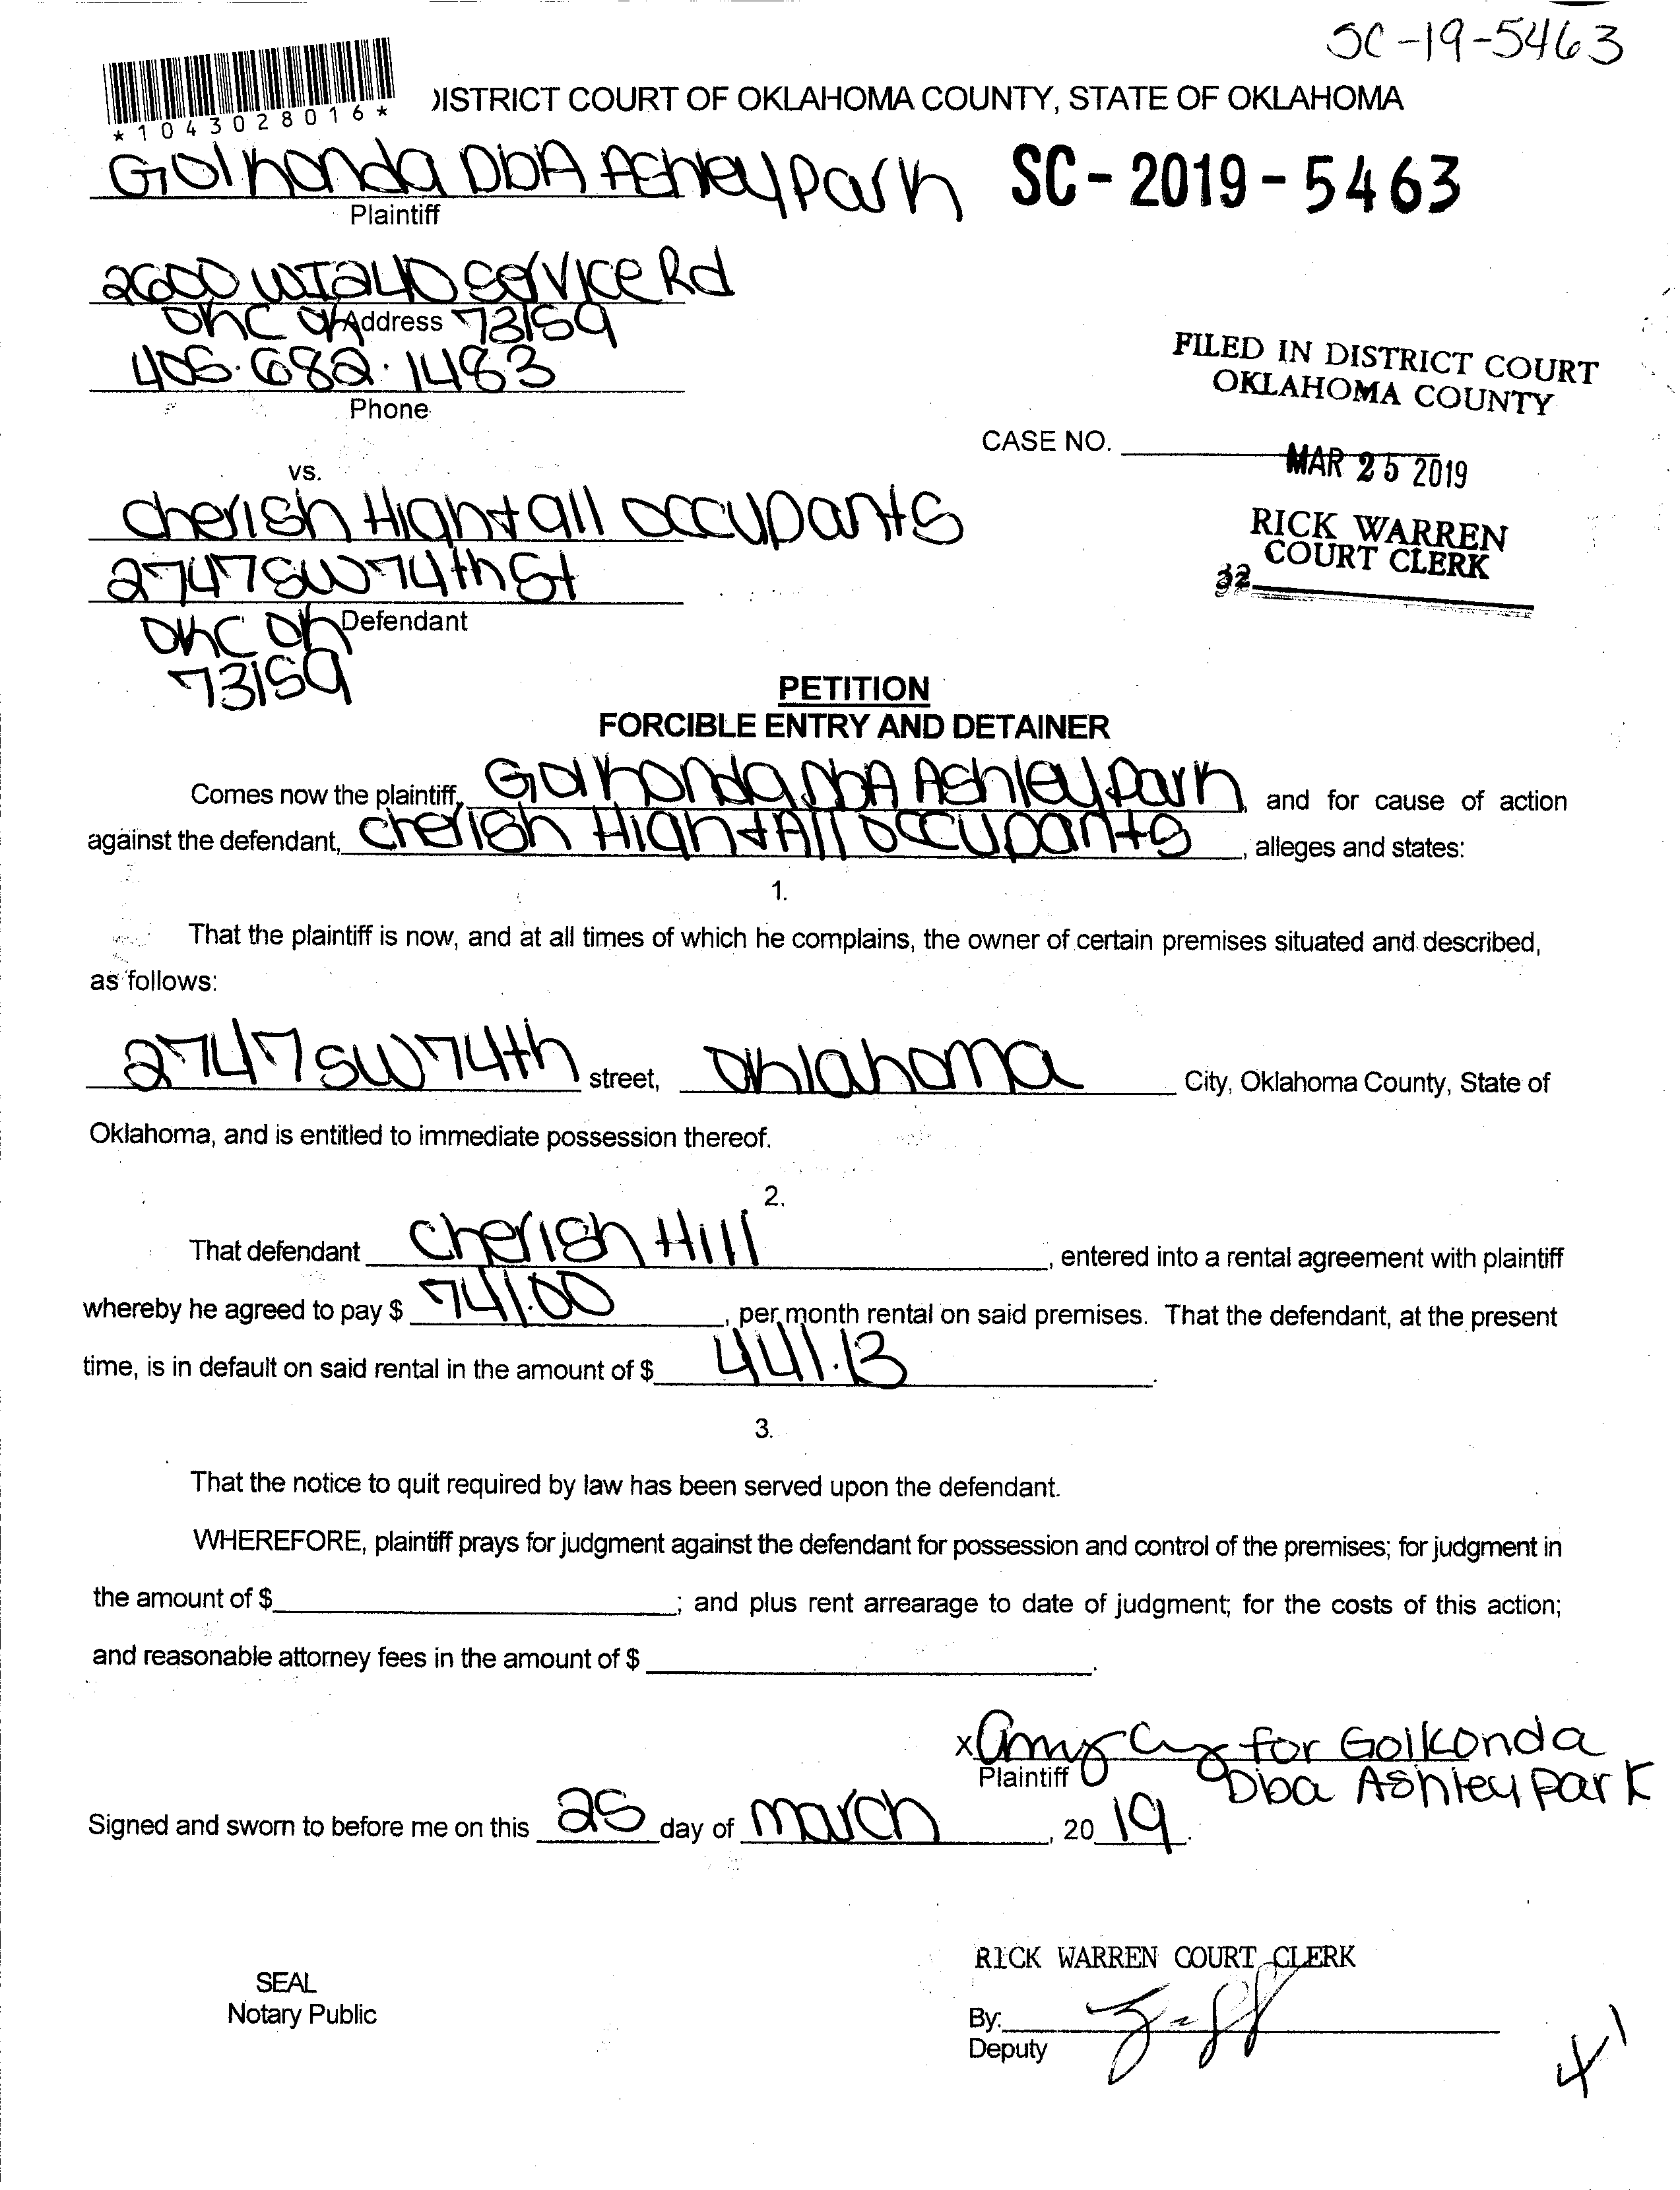 SC-19-5463
*1043028016*
DISTRICT COURT OF OKLAHOMA COUNTY, STATE OF OKLAHOMA
Golkonda DbA Ashley Park SC-2019-5463
Plaintiff
2600 W I240 Service Rd
OKC OK Address 73159
405.682.1483
Phone
FILED IN DISTRICT COURT
OKLAHOMA COUNTY
CASE NO.
MAR 25 2019
vs.
Cherish High+all occupants
RICK WARREN
COURT CLERK
2747 SW 74th St
32
OKC OK Defendant
73159
PETITION
FORCIBLE ENTRY AND DETAINER
Comes now the plaintiff, Golkonda DbA Ashley Park, and for cause of action
against the defendant, Cherish High+All occupants, alleges and states:
1.
That the plaintiff is now, and at all times of which he complains, the owner of certain premises situated and described,
as follows:
2747 SW 74th street, Oklahoma City, Oklahoma County, State of
Oklahoma, and is entitled to immediate possession thereof.
2.
That defendant Cherish Hill, entered into a rental agreement with plaintiff
whereby he agreed to pay $ 741.00, per month rental on said premises. That the defendant, at the present
time, is in default on said rental in the amount of $ 441.13.
3.
That the notice to quit required by law has been served upon the defendant.
WHEREFORE, plaintiff prays for judgment against the defendant for possession and control of the premises; for judgment in
the amount of $; and plus rent arrearage to date of judgment; for the costs of this action;
and reasonable attorney fees in the amount of $.
x Amy for Golkonda
Plaintiff Dba Ashley Park
Signed and sworn to before me on this 25 day of March, 20 19.
RICK WARREN COURT CLERK
SEAL
Notary Public
By:
Deputy